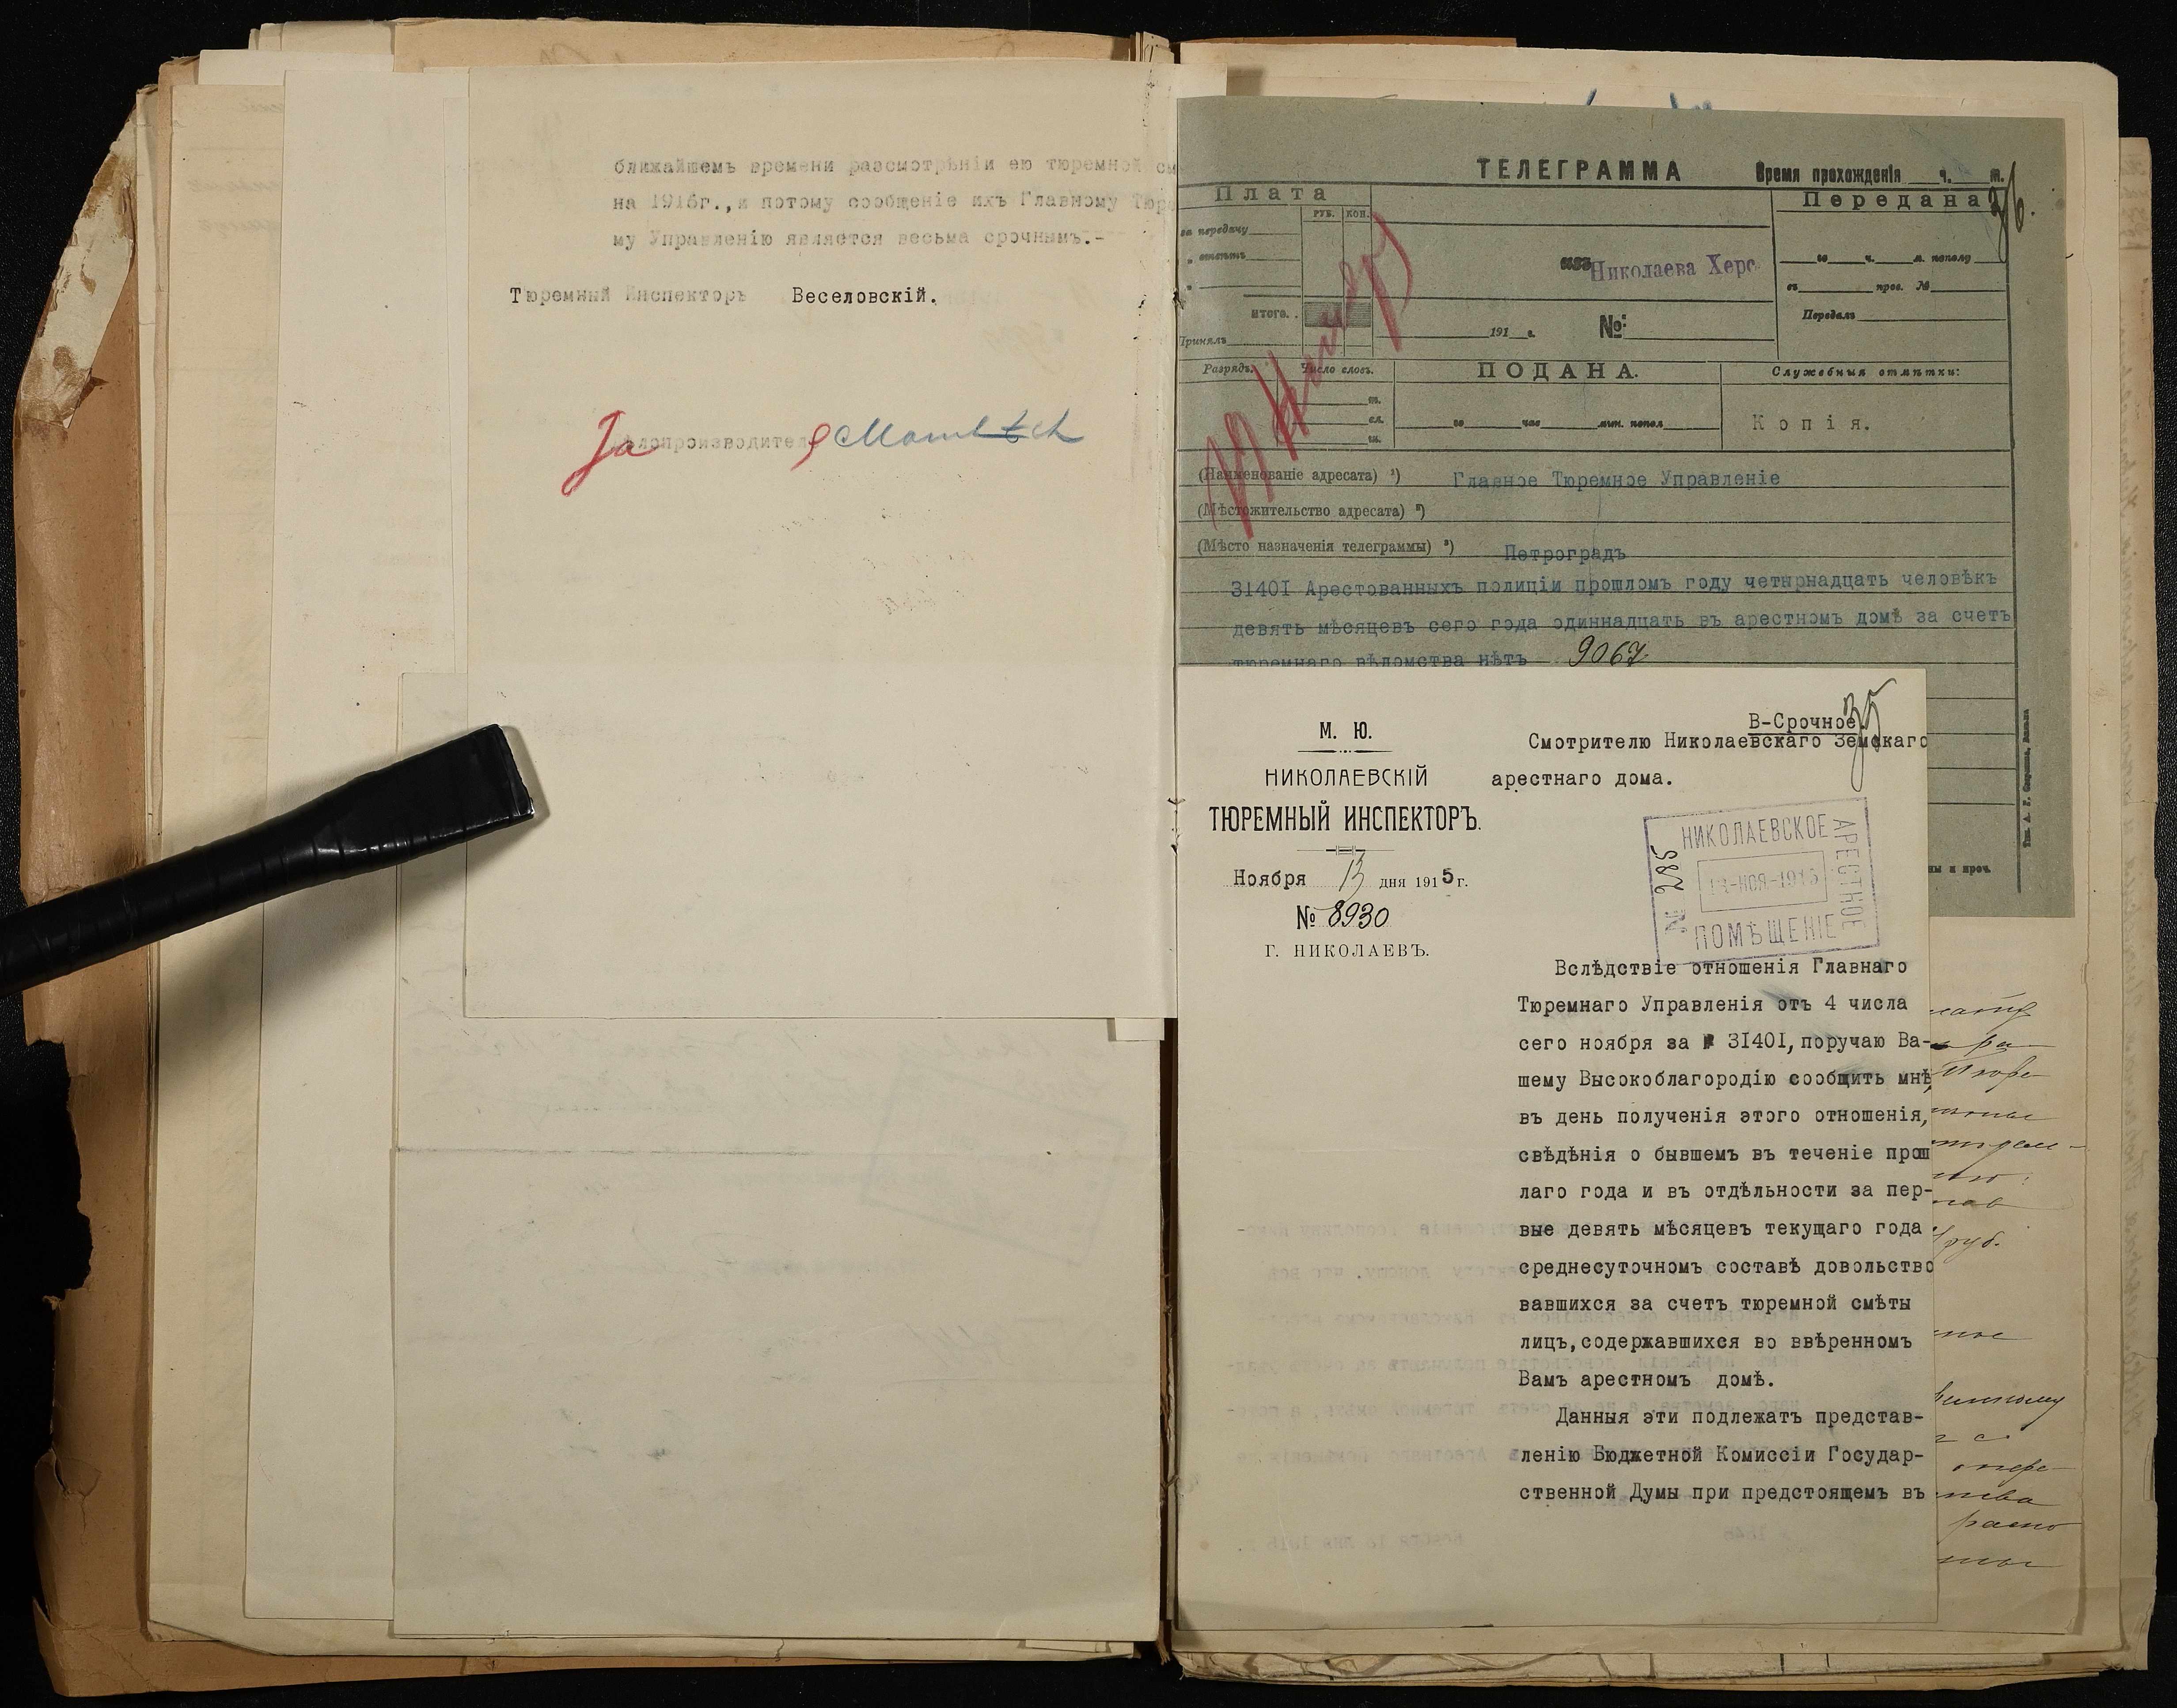 ближайшемъ времени разсмотрѣніи ею тюремной см
на 1916г.,и потому сообщеніе ихъ Главному Тюре
му Управленію является весьма срочнымъ.-
Тюремный Инспекторъ Веселовскій.
За Дѣлопроизводителя
ТЕЛЕГРАММА
Время прохожденія ч. м.
Плата
РУБ. КОП.
за передачу
„ отвѣтъ
„
ИТОГО. .
Принялъ
изъ Николаева Херс
191 г. №:
Передана
го ч. м. пополу
въ пров. №
Передалъ
36.
Разрядъ. Число словъ.
ПОДАНА.
го час мин. попол
Служебныя отмѣтки:
Копія.
(Наименованіе адресата) ¹) Главное Тюремное Управленіе
(Мѣстожительство адресата) ²)
(Мѣсто назначенія телеграммы) ³) Петроградъ
31401 Арестованныхъ полиціи прошломъ году четырнадцать человѣкъ
девять мѣсяцевъ сего года одиннадцать въ арестномъ домѣ за счетъ
тюремнаго вѣдомства нѣтъ 9067
ны и проч.
М. Ю.
НИКОЛАЕВСКІЙ
ТЮРЕМНЫЙ ИНСПЕКТОРЪ.
Ноября 13 дня 1915 г.
№ 8930
Г. НИКОЛАЕВЪ.
35
В-Срочное.
Смотрителю Николаевскаго Земскаго
арестнаго дома.
НИКОЛАЕВСКОЕ
АРЕСТНОЕ
ПОМѢЩЕНІЕ
13-НОЯ-1915
№ 285
Вслѣдствіе отношенія Главнаго
Тюремнаго Управленія отъ 4 числа
сего ноября за № 31401,поручаю Ва-
шему Высокоблагородію сообщить мнѣ,
въ день полученія этого отношенія,
свѣдѣнія о бывшемъ въ теченіе прош
лаго года и въ отдѣльности за пер-
вые девять мѣсяцевъ текущаго года
среднесуточномъ составѣ довольство
вавшихся за счетъ тюремной смѣты
лицъ,содержавшихся во ввѣренномъ
Вамъ арестномъ домѣ.
Данныя эти подлежатъ представ-
ленію Бюджетной Комиссіи Государ-
ственной Думы при предстоящемъ въ
руб.